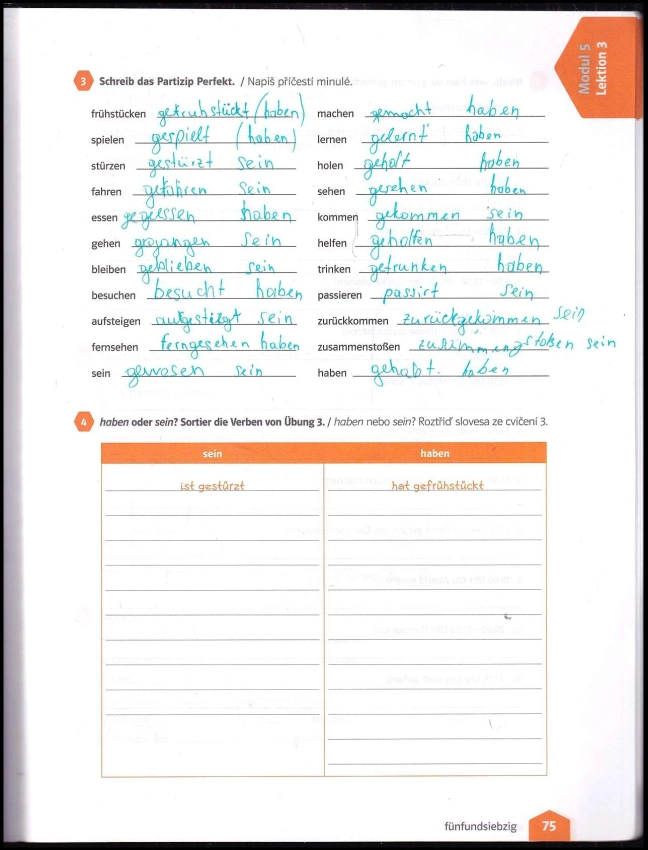 Modul 5
Lektion 3
3 Schreib das Partizip Perfekt. / Napiš příčestí minulé.
frühstücken gefruhstückt (haben)
spielen gespielt (haben)
stürzen gestürzt sein
fahren gefahren sein
essen gegessen haben
gehen gegangen sein
bleiben geblieben sein
besuchen besucht haben
aufsteigen sein
fernsehen ferngesehen haben
sein gewosen sein
machen gemacht haben
lernen gelernt haben
holen geholt haben
sehen gesehen haben
kommen gekommen sein
helfen geholfen haben
trinken getrunken haben
passieren passirt sein
zurückkommen zurückgekommen sein
zusammenstoßen sein
haben gehabt. haben
4 haben oder sein? Sortier die Verben von Übung 3. / haben nebo sein? Roztřiď slovesa ze cvičení 3.
sein haben
ist gestürzt hat gefrühstückt
fünfundsiebzig 75